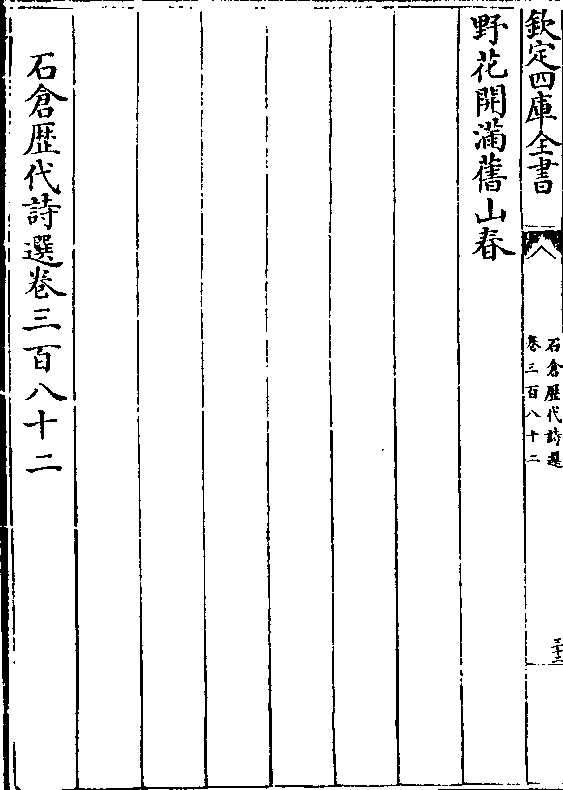 欽定四庫全書
石倉歷代詩選
卷三百八十二
三十二
野花開滿舊山春
石倉歷代詩選卷三百八十二